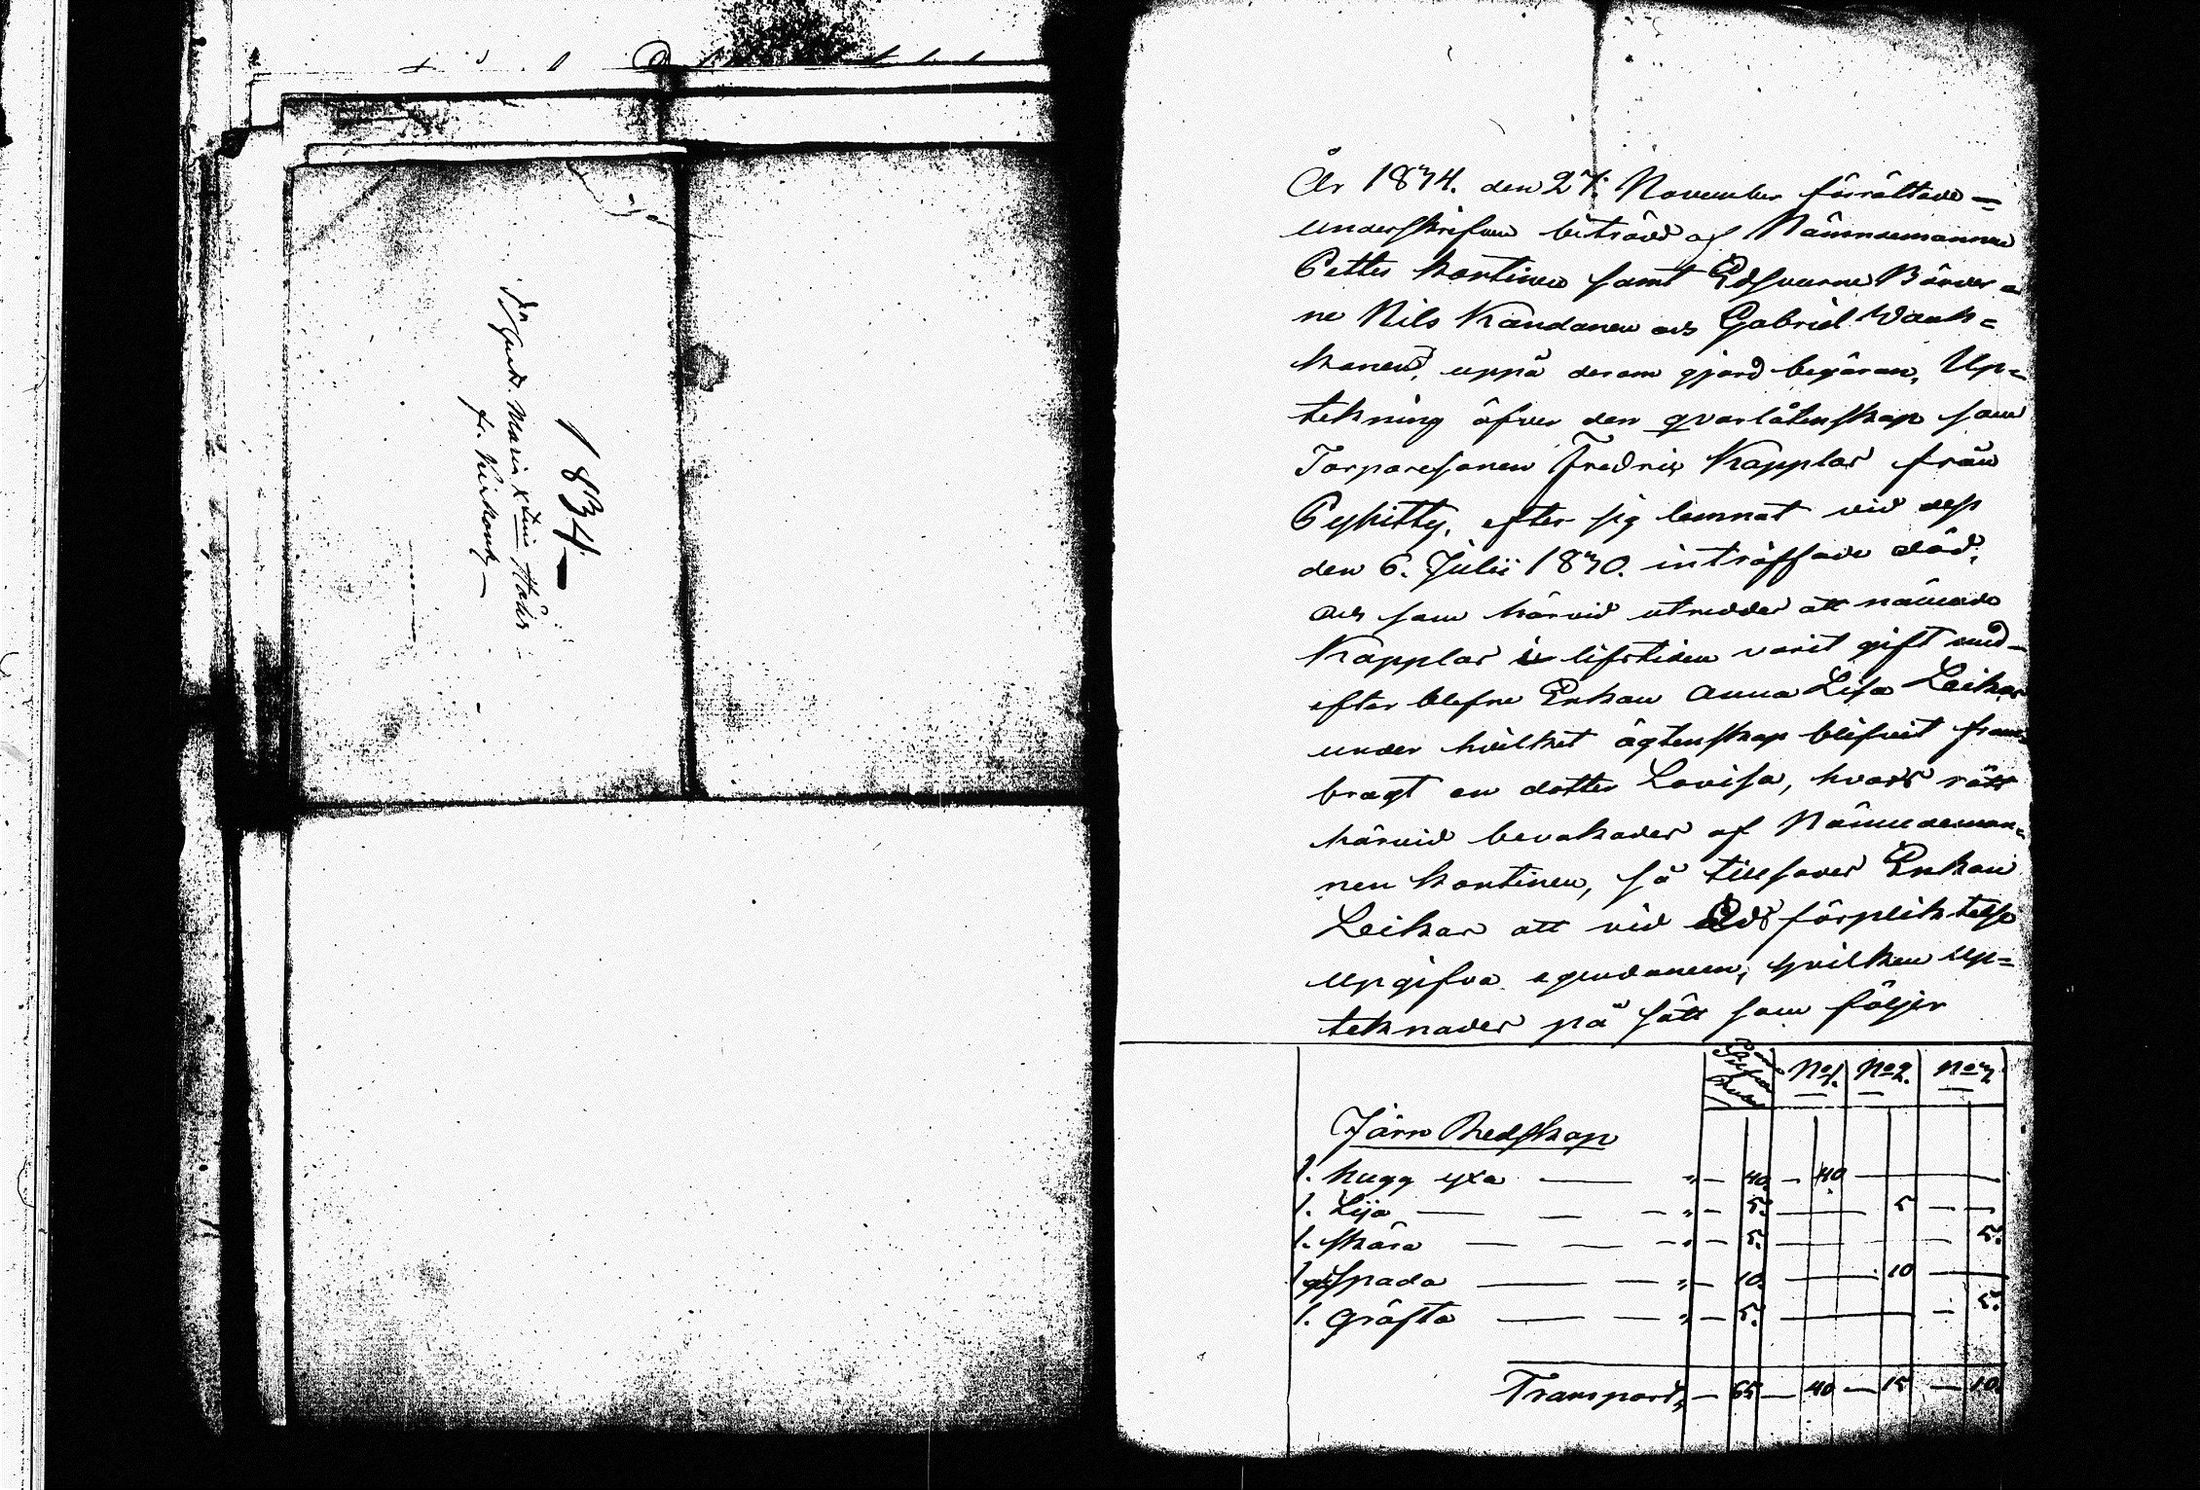 1834
Maria
År 1834. den 27. November förrättade
underskrifven biträdd af Nämndemannen
Petter Kontinen samt Edsvurne Bönder=
ne Nils Kandanen och Gabriel Wauh=
konen, uppå derom gjord begäran, Up=
tekning öfver den qvarlåtenskap som
Torparesonen Fredric Käpplar från
Pyhitty, efter sig lemnat vid dess
den 6. Julii 1830. inträffade död,
och som härvid utreddes att nämnde
Käpplar i lifstiden varit gift med
efter blefne Enkan Anna Lisa Leikar
under hvilket ägtenskap blifvit fram=
bragt en dotter Lovisa, hvars rätt
härvid bevakades af Nämndeman=
nen Kontinen, så tillsades Enkan
Leikar att vid Eds förpliktelse
upgifva egendomen, hvilken up=
teknades på sätt som följer
No 1. No 2. No 3
Järn Redskap
1. hugg yxa — " — 40. — 40
1. Lija — " — 5. — 5
1. skära — " — 5. — 5.
1 spada — " — 10. — 10
1. gräfta — " — 5. — 5.
Transport, — 65 — 40 — 15 — 10